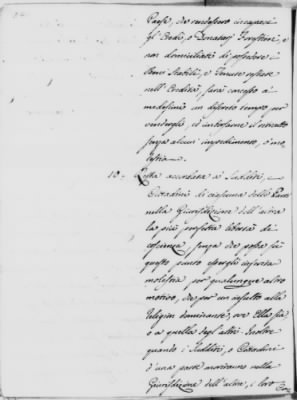 Paese, che rendessero incapaci
gl' Eredi, o Donatarj Forestieri, e
non domiciliati di possedere i
Beni Stabili, e
nell' Eredità, sarà concesso a
medesimi un discreto tempo per
vendergli, ed introitarne il ritratto
senza alcun impedimento, o mo-
lestia.
10 - Resta accordata a' Sudditi, e
Cittadini di ciascuna delle Parti
nella Giurisdizione dell' altra
la più perfetta libertà di
coscienza, senza che possa su
questo punto essergli inferita
molestia per qualunque altro
motivo, che per un insulto alla
Religion dominante, ove Ella sia,
o a quella degl' altri. Inoltre
quando i Sudditi, o Cittadini
d'una parte morissero nella
Giurisdizione dell' altra, i loro
Cor